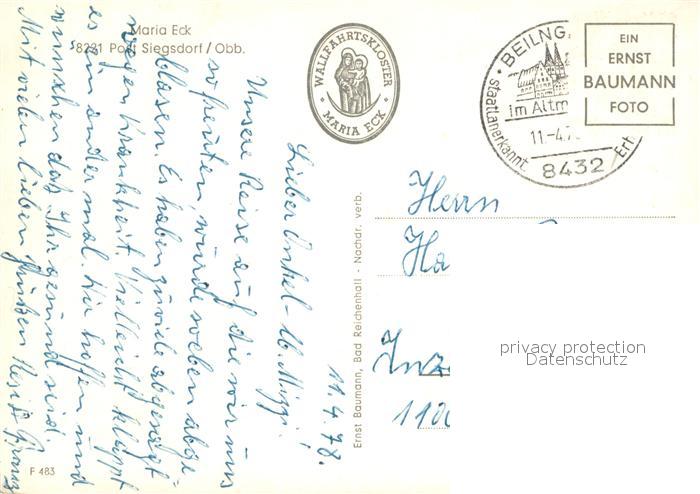 Maria Eck
8221 Post Siegsdorf / Obb.
WALLFAHRTSKLOSTER
MARIA ECK
BEILNG
staatl. anerkannt.
im Altm
11.-4.7
8432
Erh
EIN
ERNST
BAUMANN
FOTO
11.4.78.
Lieber Onkel - lb. Mizzi!
Unsere Reise auf die wir uns
so freuten, wurde soeben abge=
blasen. Es haben zuviele abgesagt
wegen Krankheit. Vielleicht klappt
es ein andermal. Wir hoffen und
wünschen daß Ihr gesund seid.
Mit vielen lieben Grüßen
Herrn
Ha
Inz
Ernst Baumann, Bad Reichenhall - Nachdr. verb.
F 483
privacy protection
Datenschutz